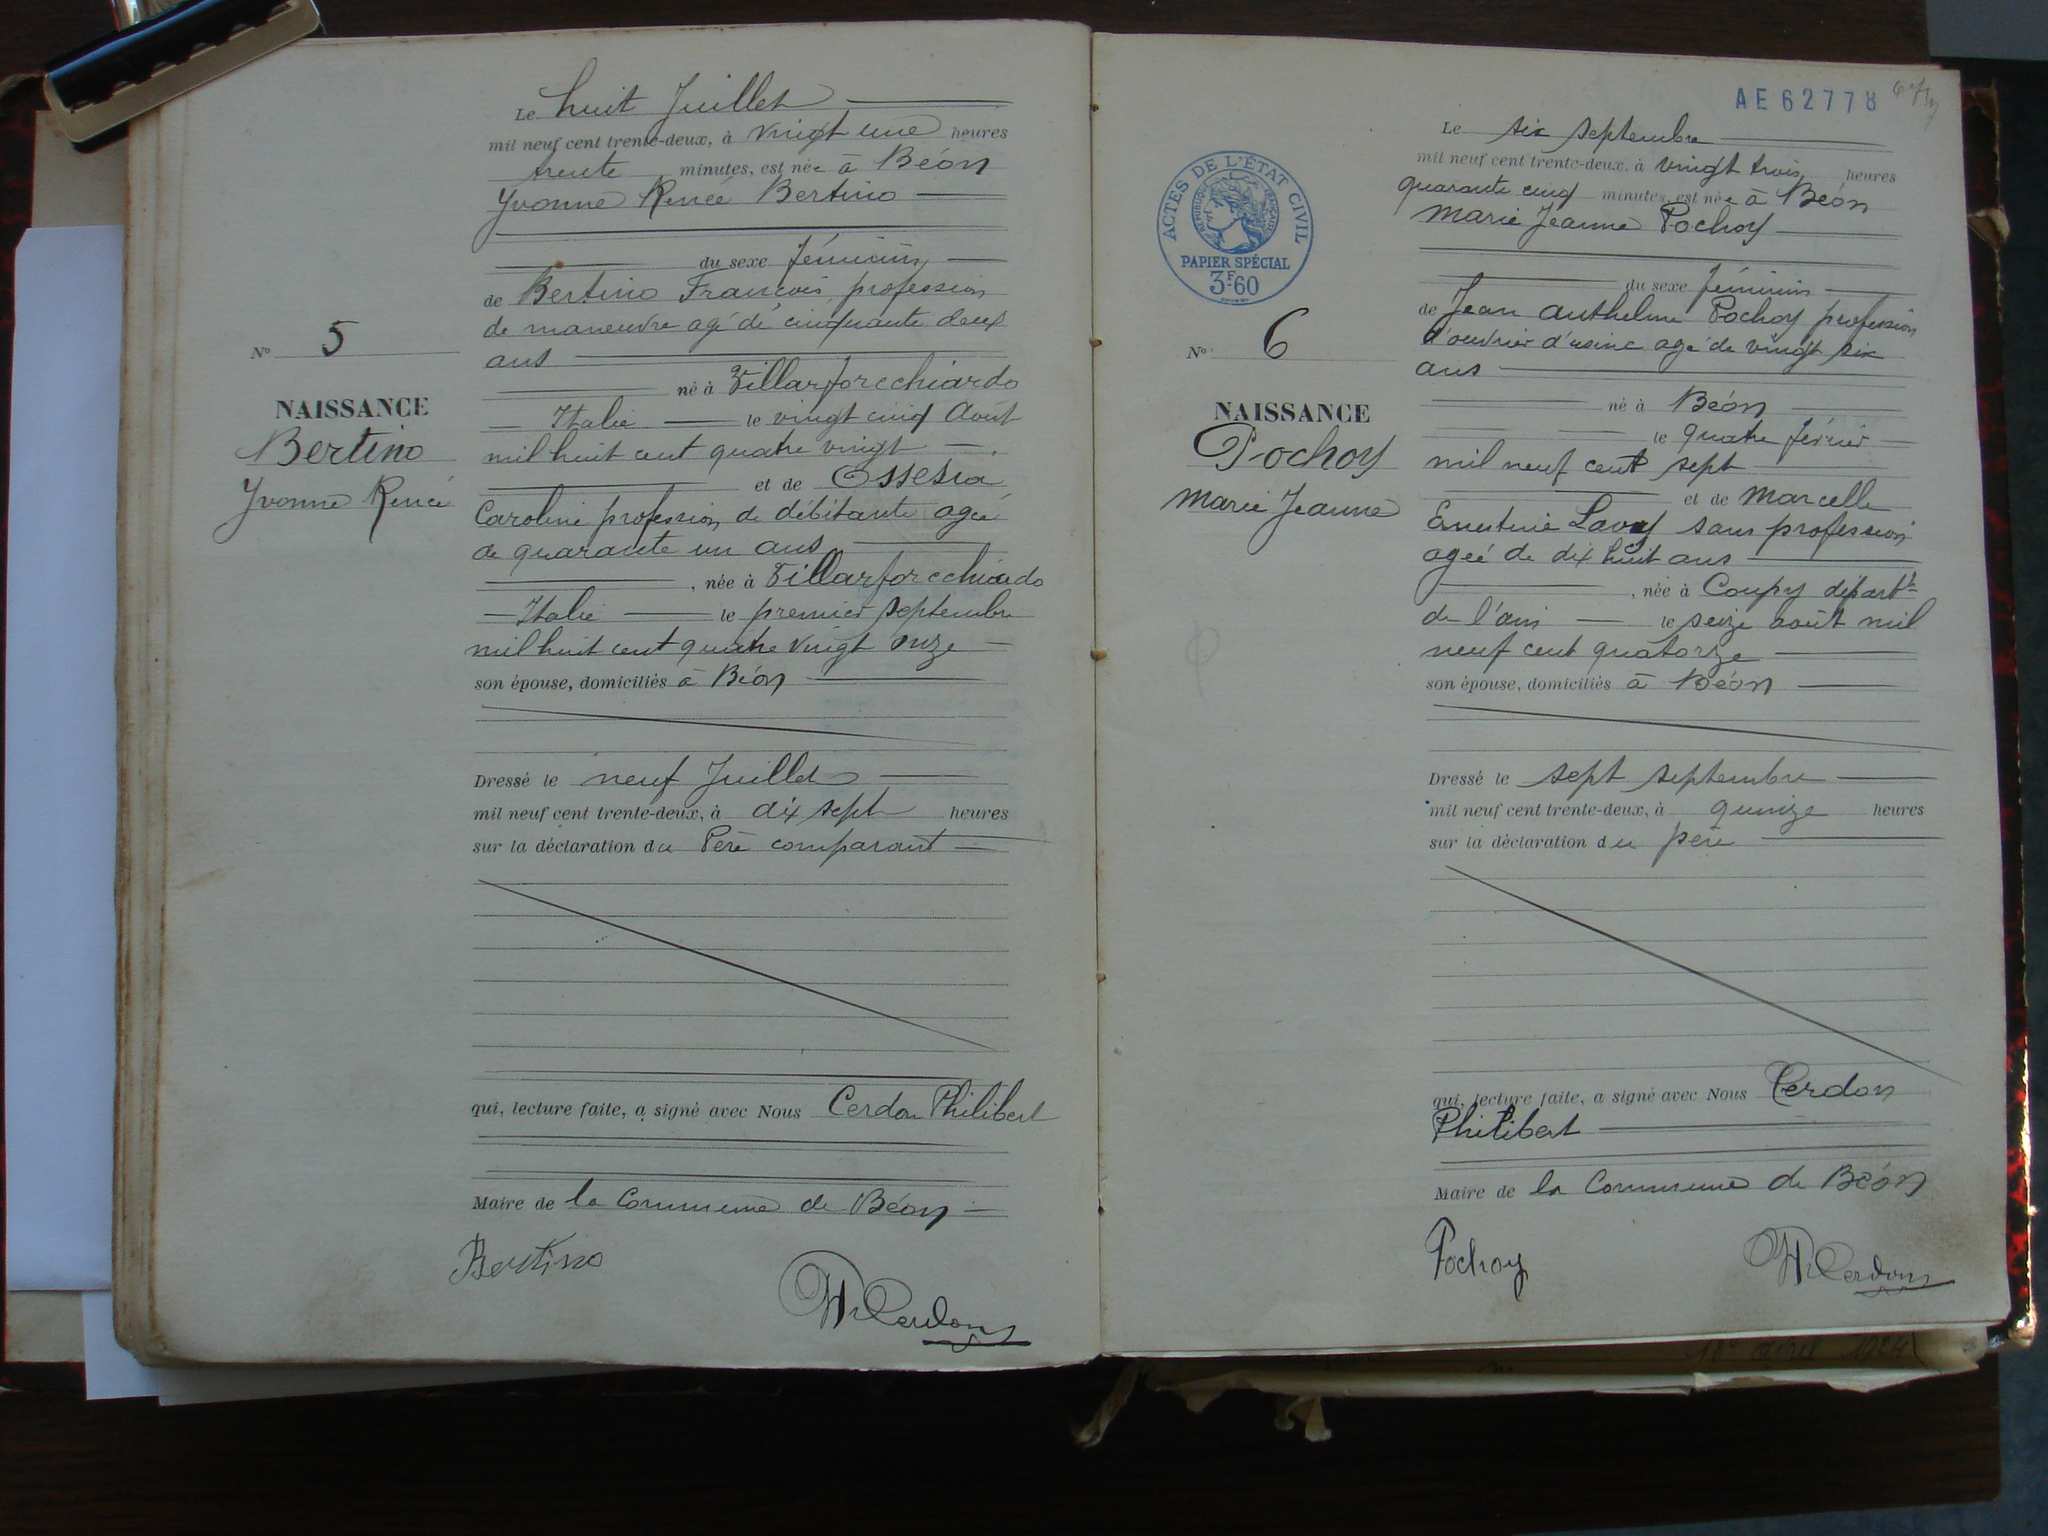 Le huit Juillet
mil neuf cent trente-deux, à vingt une heures
trente minutes, est née à Béon
Yvonne Renée Bertino
du sexe féminin
de Bertino François, profession
de manœuvre agé de cinquante deux
ans
né à Villarforchiardo
Italie le vingt cinq Août
mil huit cent quatre vingt
et de Ossesia
Caroline profession de débitante agée
de quarante un ans
, née à Villarforchiardo
Italie le premier septembre
mil huit cent quatre vingt onze
son épouse, domiciliés à Béon
Dressé le neuf Juillet
mil neuf cent trente-deux, à dix sept heures
sur la déclaration du Père comparant
qui, lecture faite, a signé avec Nous Cerdon Philibert
Maire de la Commune de Béon
Bertino
Cerdon
N° 5
NAISSANCE
Bertino
Yvonne Renée
AE 62778
Le six septembre
mil neuf cent trente-deux, à vingt trois heures
quarante cinq minutes, est née à Béon
Marie Jeanne Pochoy
du sexe féminin
de Jean Anthelme Pochoy profession
d'ouvrier d'usine agé de vingt six
ans
né à Béon
le quatre février
mil neuf cent sept
et de Marcelle
Ernestine Lavy sans profession
agée de dix huit ans
, née à Coupy départt
de l'ain le seize août mil
neuf cent quatorze
son épouse, domiciliés à Béon
Dressé le sept septembre
mil neuf cent trente-deux, à quinze heures
sur la déclaration du père
qui, lecture faite, a signé avec Nous Cerdon
Philibert
Maire de la Commune de Béon
Pochoy
Cerdon
ACTES DE L'ÉTAT CIVIL
RÉPUBLIQUE FRANÇAISE
PAPIER SPÉCIAL
3F60
N° 6
NAISSANCE
Pochoy
Marie Jeanne